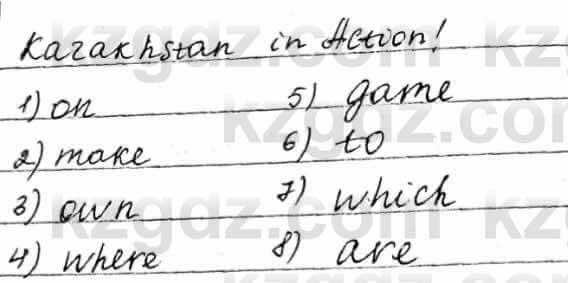 Kazakhstan in Action!
1) on
2) make
3) own
4) where
5) game
6) to
7) which
8) are